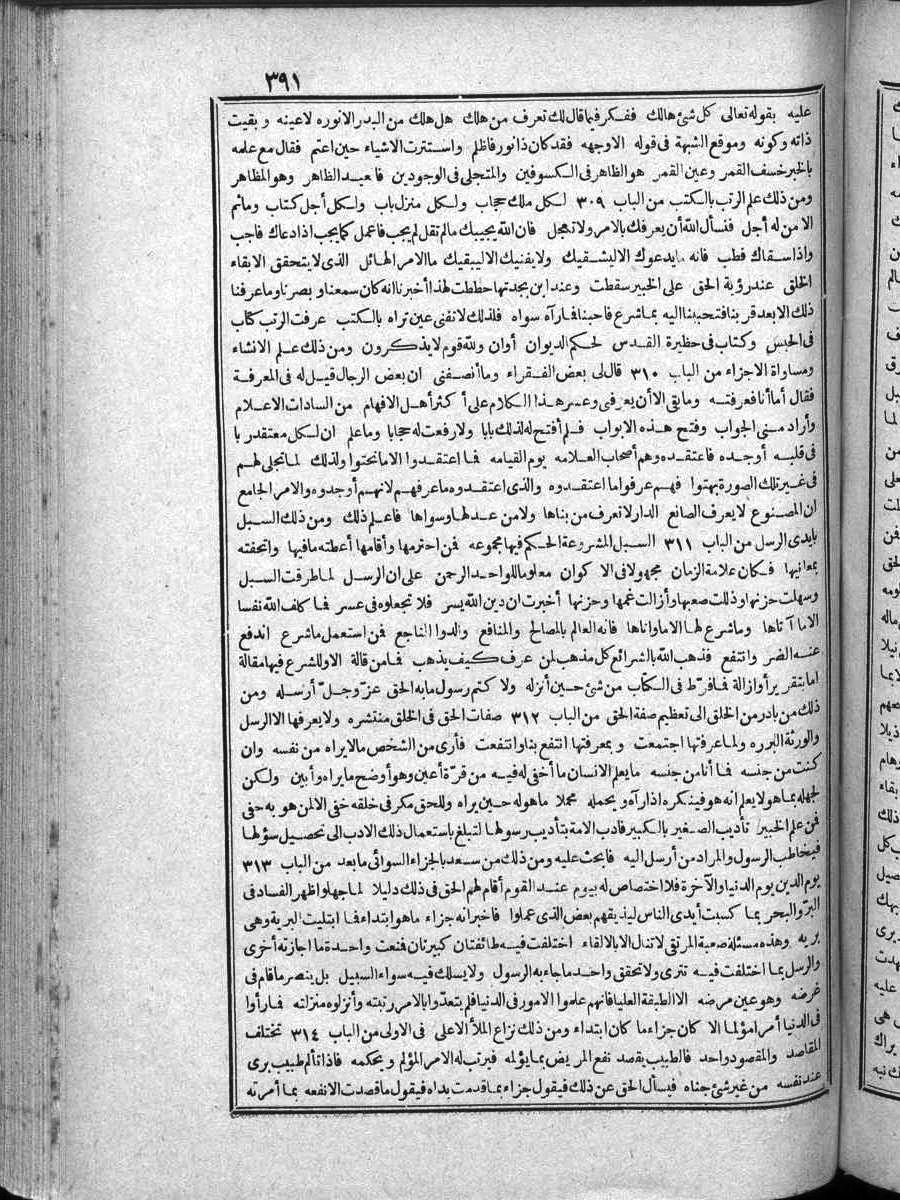 ٣٩١
عليه بقوله تعالى كل شئ هالك ففكر فيما قال لك تعرف من هلك هل هلك من البدر الا نوره لا عينه وبقيت
ذاته وكونه وموقع الشبهة فى قوله الا وجهه فقد كان ذا نور فاظلم واستترت الاشياء حين اعتم فقال مع علمه
بالخبر خسف القمر وعين القمر هو الظاهر فى الكسوفين والمتجلى فى الوجودين فاعبد الظاهر وهو المظاهر
ومن ذلك علم الرتب بالكتب من الباب ٣٠٩ لكل ملك حجاب ولكل منزل باب ولكل أجل كتاب وما ثم
الا من له أجل فنسأل الله أن يعرفك بالامر ولا تعجل فان الله يجيبك ما لم تقل لم يجب فاعمل كما يجب اذا دعاك فاجب
واذا سقاك فطب فانه ما يدعوك الا ليشقيك ولا يفنيك الا ليبقيك ما الامر الهائل الذى لا يتحقق الابقاء
الخلق عند رؤية الحق على الخبير سقطت وعند ابن بجدتها حططت لهذا أخبرنا انه كان سمعنا وبصرنا وما عرفنا
ذلك الا بعد قربنا فتحببنا اليه بما شرع فاحبنا فما رآه سواه فلذلك لا تفنى عين تراه بالكتب عرفت الرتب كتاب
فى الحبس وكتاب فى حظيرة القدس لحكم الديوان أوان ولله قوم لا يذكرون ومن ذلك علم الانشاء
ومساواة الاجزاء من الباب ٣١٠ قال لى بعض الفقراء وما أنصفنى ان بعض الرجال قيل له فى المعرفة
فقال أما أنا فعرفته وما بقى الا أن يعرفنى وعسر هذا الكلام على أكثر أهل الافهام من السادات الاعلام
وأراد منى الجواب وفتح هذه الابواب فلم أفتح له لذلك بابا ولا رفعت له حجابا وما علم ان لكل معتقد ربا
فى قلبه أوجده فاعتقده وهم أصحاب العلامه يوم القيامه فما اعتقدوا الا ما نحتوا ولذلك لما تجلى لهم
فى غير تلك الصورة بهتوا فهم عرفوا ما اعتقدوه والذى اعتقدوه ما عرفهم لانهم أوجدوه والامر الجامع
ان المصنوع لا يعرف الصانع الدار لا تعرف من بناها ولا من عدلها وسواها فاعلم ذلك ومن ذلك السبل
بايدى الرسل من الباب ٣١١ السبل المشروعة الحكم فيها مجموعه فمن احترمها وأقامها أعطته ما فيها واتحفته
بمعانيها فكان علامة الزمان مجهولا فى الاكوان معلوما للواحد الرحمن على ان الرسل لما طرقت السبل
وسهلت حزنها وذللت صعبها وأزالت غمها وحزنها أخبرت ان دين الله يسر فلا تجعلوه فى عسر فما كلف الله نفسا
الا ما آتاها وما شرع لها الا ما واتاها فانه العالم بالمصالح والمنافع والدوا الناجع فمن استعمل ما شرع اندفع
عنه الضر وانتفع فذهب الله بالشرائع كل مذهب لمن عرف كيف يذهب فما من قالة الا وللشرع فيها مقالة
اما بتقرير أو ازالة فما فرّط فى الكتاب من شئ حين أنزله ولا كتم رسول ما به الحق عزّ وجلّ أرسله ومن
ذلك من بادر من الخلق الى تعظيم صفة الحق من الباب ٣١٢ صفات الحق فى الخلق منتشره ولا يعرفها الا الرسل
والورثة البرره ولما عرفتها اجتمعت وبمعرفتها انتفع بنا وانتفعت فأرى من الشخص ما لا يراه من نفسه وان
كنت من جنسه فما أنا من جنسه ما يعلم الانسان ما أخفى له فيه من قرّة أعين وهو أوضح ما يراه وأبين ولكن
لجهله بما هو لا يعلم انه هو فينكره اذا رآه ويحمله محملا ما هو له حين يراه وللحق مكر فى خلقه خفى الا لمن هو به حفى
فمن علم الخبير تأديب الصغير بالكبير فادب الامة بتأديب رسولها لتبلغ باستعمال ذلك الادب الى تحصيل سؤلها
فيخاطب الرسول والمراد من أرسل اليه فابحث عليه ومن ذلك من سعد بالجزاء السوائى ما بعد من الباب ٣١٣
يوم الدين يوم الدنيا والآخرة فلا اختصاص له بيوم عند القوم أقام لهم الحق فى ذلك دليلا لما جهلوا ظهر الفساد فى
البرّ والبحر بما كسبت أيدى الناس ليذيقهم بعض الذى عملوا فاخبر انه جزاء ما هو ابتداء فما ابتليت البرية وهى
بريه وهذه مسئلة صعبة المرتقى لا تنال الا بالالقاء اختلفت فيه طائفتان كبيرتان فنعت واحدة ما اجازته أخرى
والرسل بما اختلفت فيه تترى ولا تحقق واحد ما جاء به الرسول ولا يسلك فيه سواء السبيل بل ينصر ما قام فى
غرضه وهو عين مرضه الا الطبقة العليا فانهم علموا الامور فى الدنيا فلم يتعدّوا بالامر رتبته وأنزلوه منزلته فما رأوا
فى الدنيا أمرا مؤلما الا كان جزاء ما كان ابتداء ومن ذلك نزاع الملأ الاعلى فى الاولى من الباب ٣١٤ تختلف
المقاصد والمقصود واحد فالطبيب يقصد نفع المريض بما يؤلمه فيرتب له الامر المؤلم ويحكمه فاذا تألم طبيب برى
عند نفسه من غير شئ جناه فيسأل الحق عن ذلك فيقول جزاء بما قدمت يداه فيقول ما قصدت الا نفعه بما أمرته